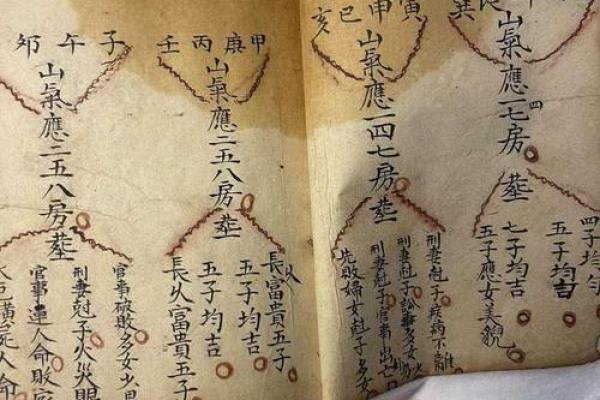 巽
山氣應一四七房塟
四子均
五子均吉
七子均吉
五子應女美貌
寅
甲
巳
亥
山氣應一四七房塟
刑妻尅子疾病不離
刑妻尅子訟事多女
刑妻尅子官事出亡
先敗婦女尅子多女
甲
庚
丙
壬
山氣應二五八房塟
長富貴五子
五子均吉
五子均吉
長久富貴五子
子
午
卯
山氣應二五八房塟
官事破敗多女少男
刑妻尅子火災眼
官事連人命敗